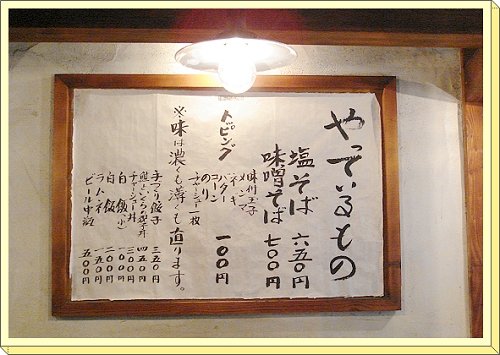 やっているもの
塩そば 六五〇円
味噌そば 七〇〇円
トピング
味付玉子
メンマ
ネギ
バター
コーン
のり
チャーシュー一枚
一〇〇円
※味は濃くも薄くも直ります。
手づくり餃子 三五〇円
四五〇円
チャーシュー丼 三〇〇円
白飯(小) 一〇〇円
白飯 二〇〇円
ラムネ 一五〇円
ビール中瓶 五〇〇円